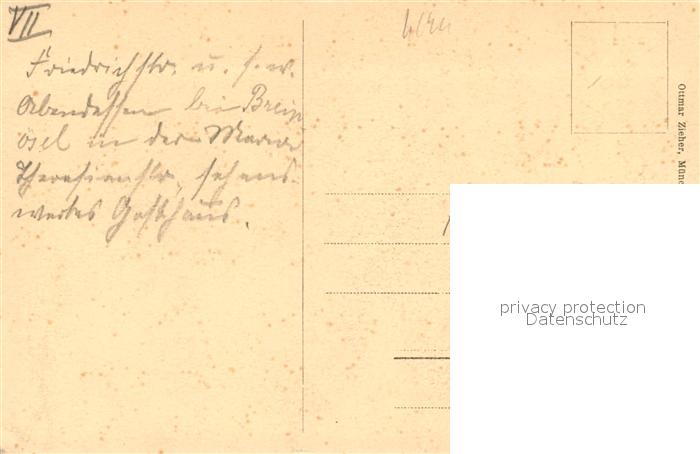 VII
Friedrichstr. u. s. w.
Abendessen bei Brein
ösel in der Maria
Theresienstr., sehens-
wertes Gasthaus.
Ottmar Zieher, Münc
privacy protection
Datenschutz